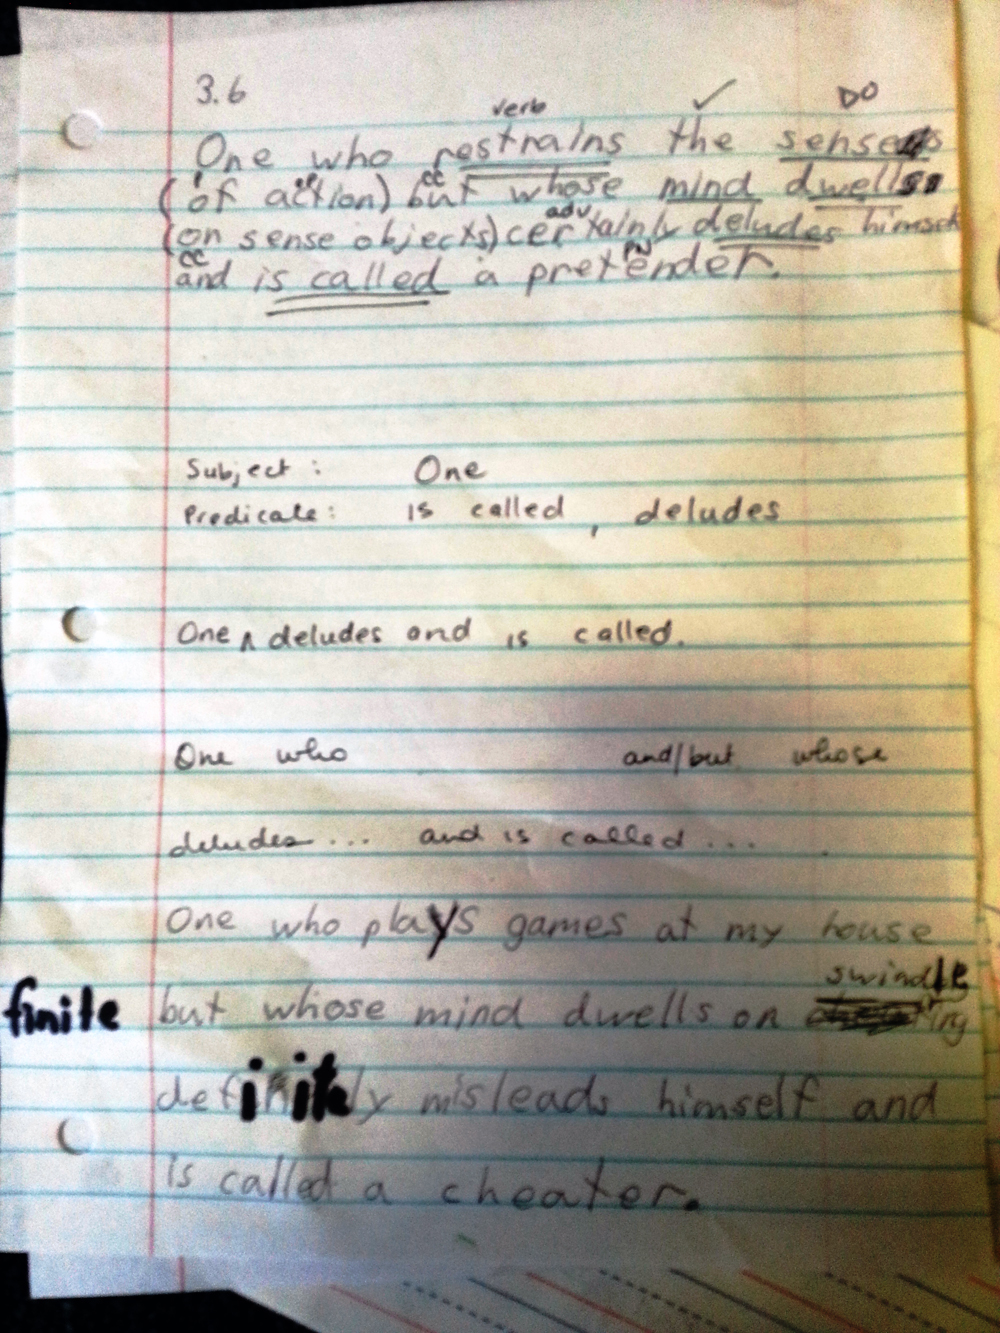 3.6
verb ✓ DO
One who restrains the senses
(of action) but whose mind dwells
cc
(on sense objects) certainly deludes himself
adv
and is called a pretender.
cc PN
Subject: One
Predicate: is called, deludes
One ^ deludes and is called.
One who and/but whose
deludes... and is called...
One who plays games at my house
swindle
finite but whose mind dwells on ing
definitely misleads himself and
is called a cheater.